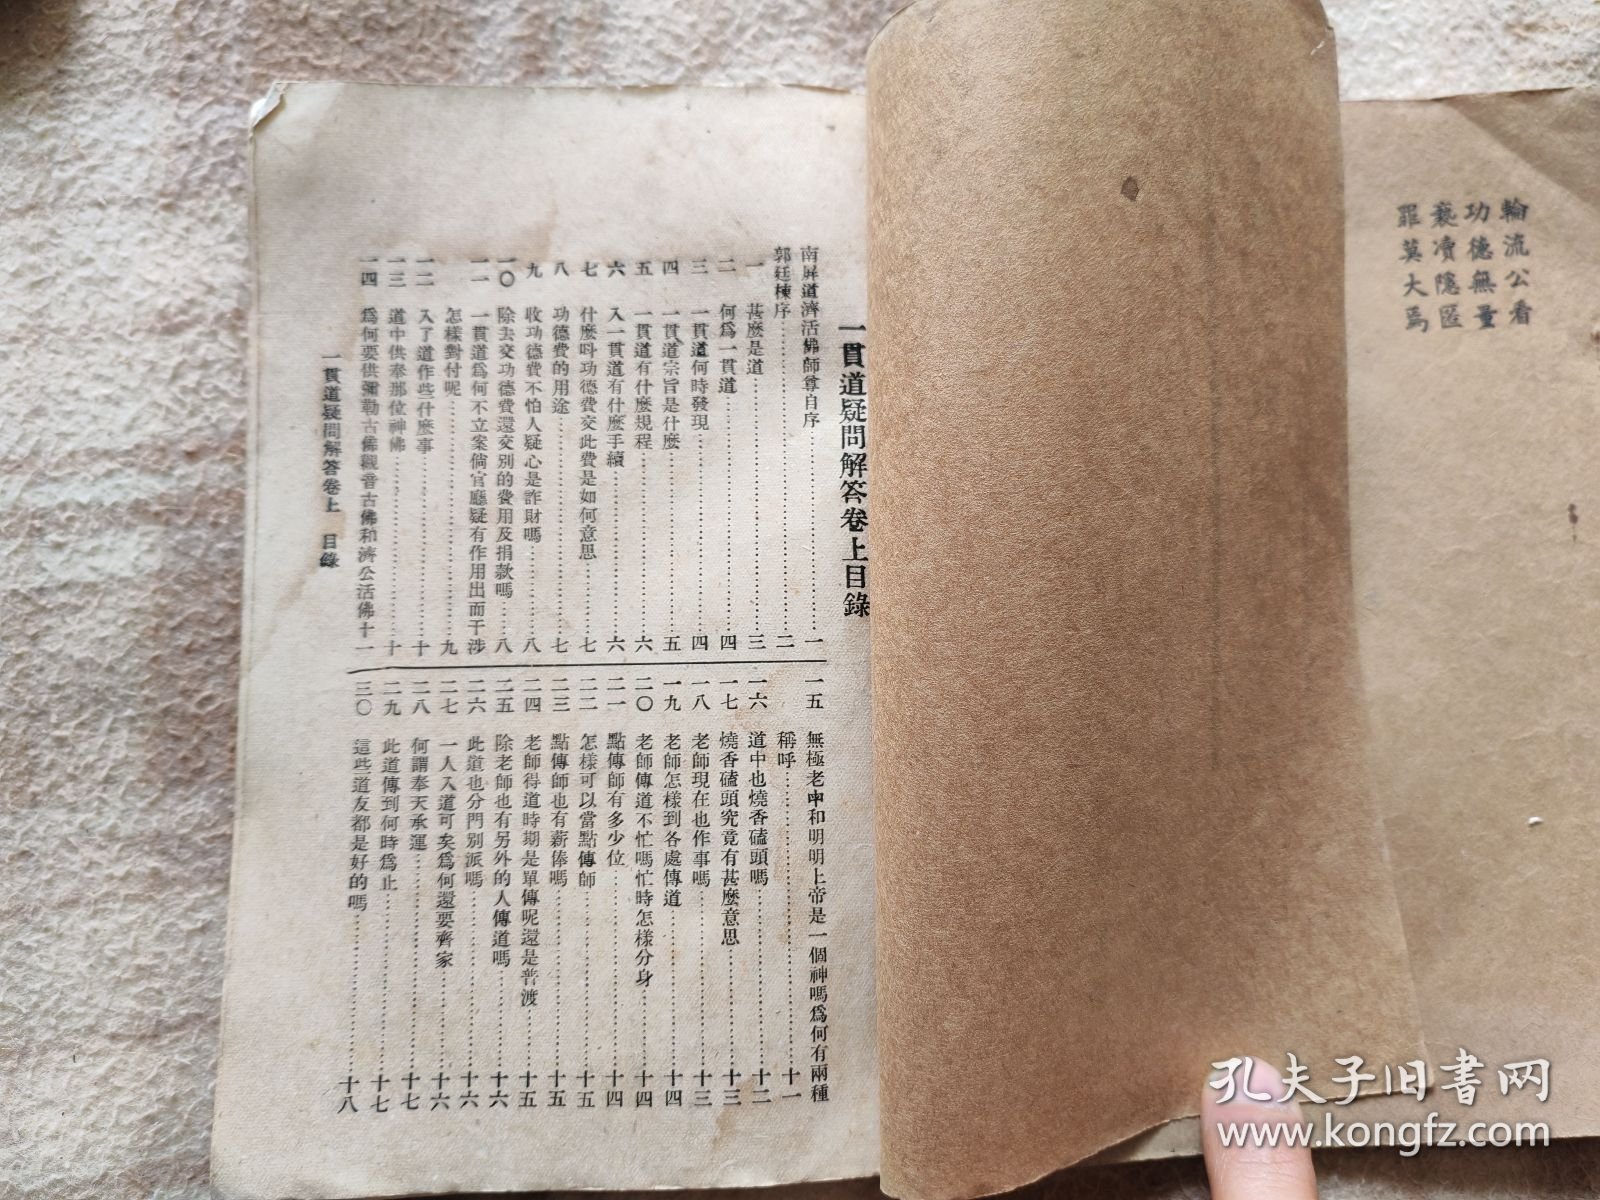 輪流公看
功德無量
褻凟隱匿
罪莫大焉
一貫道疑問解答卷上目錄
南屏道濟活佛師尊自序……一
郭廷棟序……二
一 甚麼是道……三
二 何爲一貫道……四
三 一貫道何時發現……四
四 一貫道宗旨是什麼……五
五 一貫道有什麼規程……六
六 入一貫道有什麼手續……六
七 什麼呌功德費交此費是如何意思……七
八 功德費的用途……七
九 收功德費不怕人疑心是詐財嗎……八
一〇 除去交功德費還交別的費用及捐款嗎……八
一一 一貫道爲何不立案倘官廳疑有作用出而干涉
怎樣對付呢……九
一二 入了道作些什麼事……十
一三 道中供奉那位神佛……十
一四 爲何要供彌勒古佛觀音古佛和濟公活佛十一
一五 無極老中和明明上帝是一個神嗎爲何有兩種
稱呼……十一
一六 道中也燒香磕頭嗎……十二
一七 燒香磕頭究竟有甚麼意思……十三
一八 老師現在也作事嗎……十三
一九 老師怎樣到各處傳道……十四
二〇 老師傳道不忙嗎忙時怎樣分身……十四
二一 點傳師有多少位……十四
二二 怎樣可以當點傳師……十五
二三 點傳師也有薪俸嗎……十五
二四 老師得道時期是單傳呢還是普渡……十五
二五 除老師也有另外的人傳道嗎……十六
二六 此道也分門別派嗎……十六
二七 一人入道可矣爲何還要齊家……十六
二八 何謂奉天承運……十七
二九 此道傳到何時爲止……十七
三〇 這些道友都是好的嗎……十八
一貫道疑問解答卷上 目錄
孔夫子旧书网
www.kongfz.com